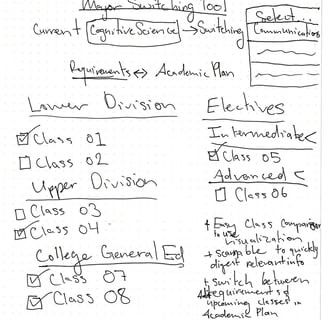 Major Switching Tool
Current Cognitive Science → Switching
Select...
Communications
Requirements ↔ Academic Plan
Lower Division
☑ Class 01
☐ Class 02
Upper Division
☐ Class 03
☑ Class 04
College General Ed
☑ Class 07
☑ Class 08
Electives
Intermediate <
☑ Class 05
Advanced <
☐ Class 06
+ Easy Class Comparison
to use
visualization
+ scannable to quickly
digest relevant info
+ switch between
requirements &
upcoming classes in
Academic Plan